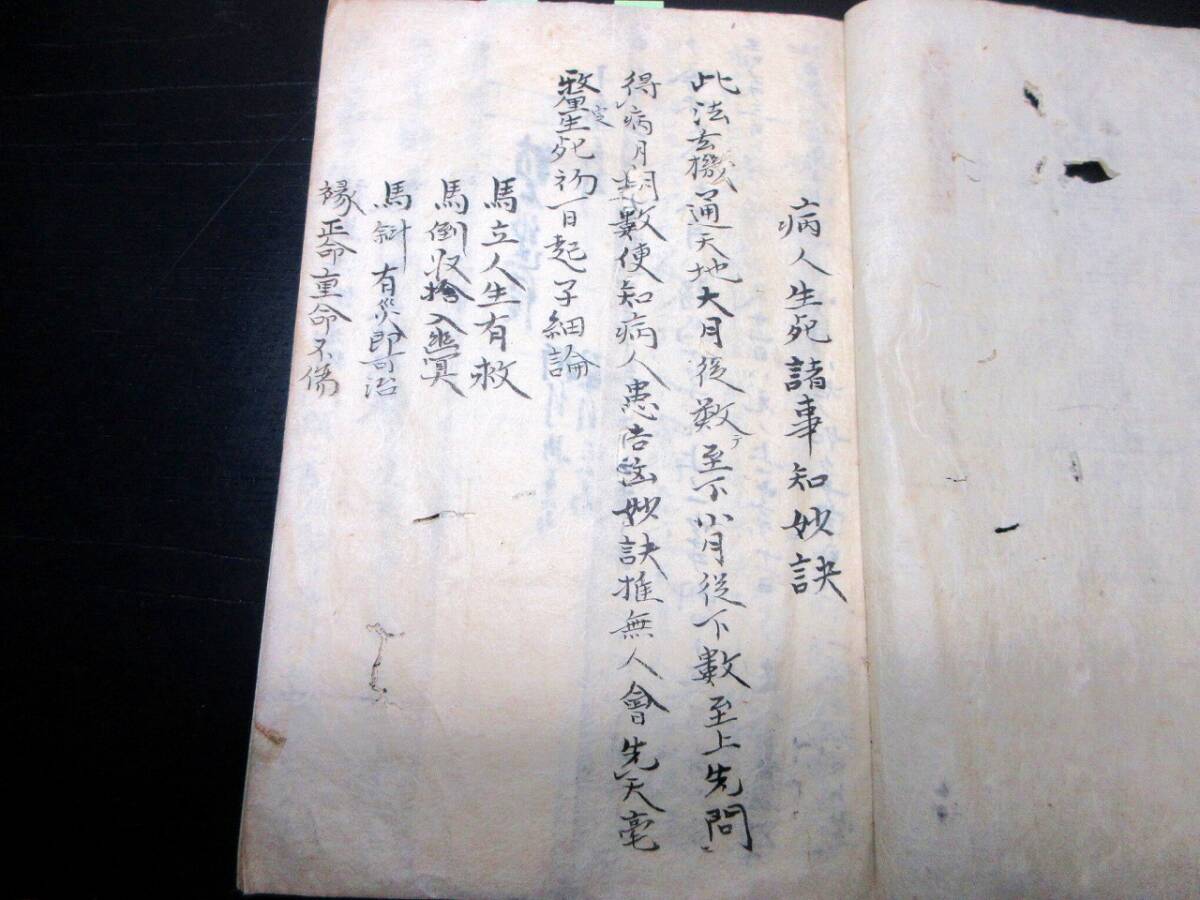 病人生死諸事知妙訣
此法玄機通天地大月從數テ至下小月從下數至上先問
得病月朔數便知病人患吉凶妙訣推無人會先天毫
釐定生死初一日起子細論
馬立人生有救
馬倒収捨入幽冥
馬斜有災即可治
縁正命重命不傷